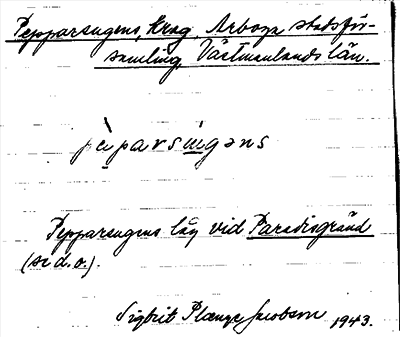 Pepparsugens, krog, Arboga stadsför-
samling, Västmanlands län.
pèparsiŋəns
Pepparsugens låg vid Paradisgränd
(se d.o.).
Sigbrit Plænge Jacobson 1943.